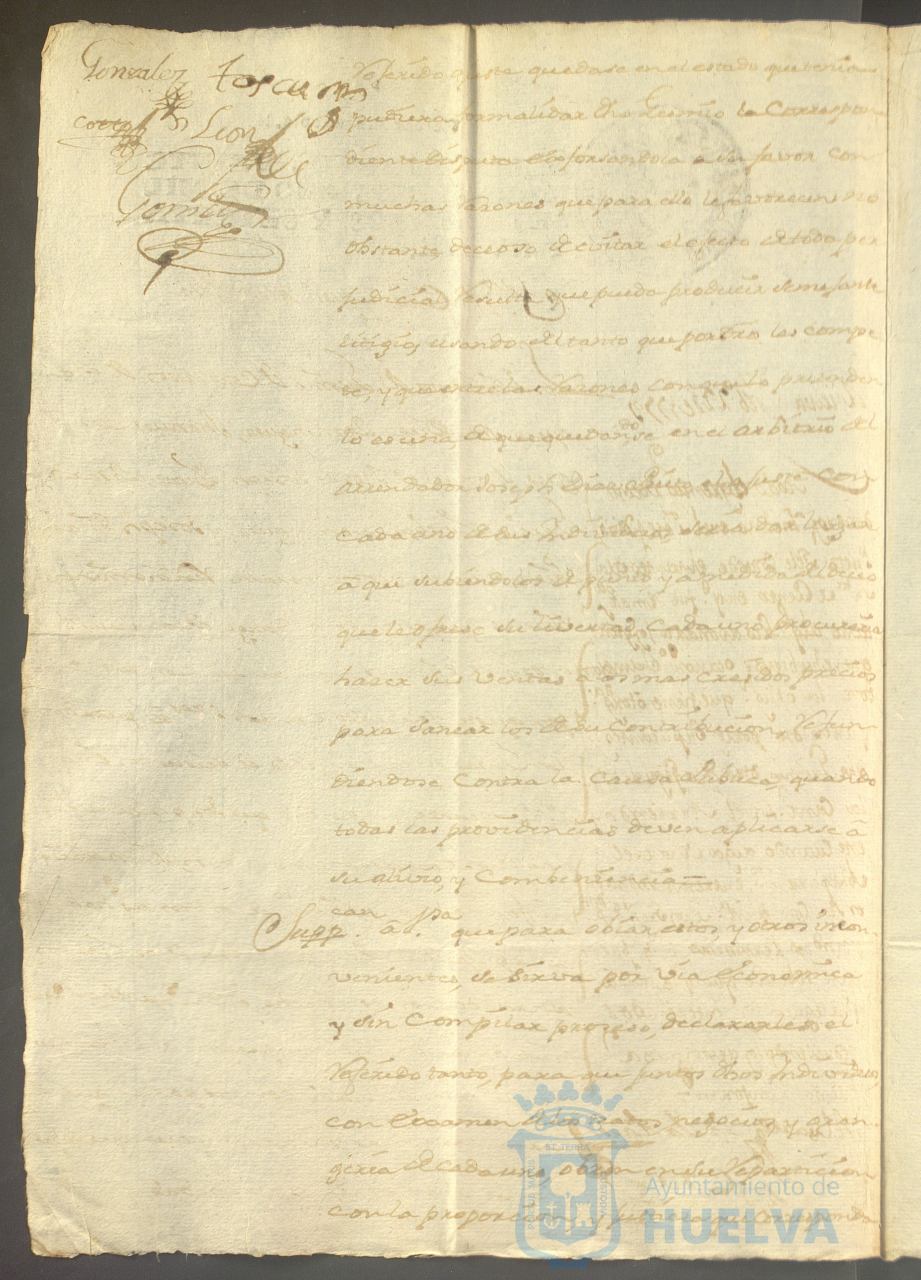 Gonzalez Toscano
Cotto Leon
Gomez
Referido que este quedase en el estado que tenia
pudiera formalizar dho Gremio la Correspon
diente disputa esforsandola à su favor con
muchas rasones que para ello le favorecen no
obstante deceoso de evitar el efecto de todo per
judicial resulta que pueda producir semejante
litigio, usando del tanto que por dro les compe
te, y que entre las rasones con que lo pretenden
lo es una de que quedandose en el arbitrio del
Arrendador Joseph Dias
cada año de sus Individuos, sería dar lugar
à que subiendolos de punto y a medida del deceo
que le ofrese su livertad, cada uno procuraria
haser sus ventas a los mas cresidos precios
para sanear los de su Contribucion, refun
diendose contra la Causa Publica, quando
todas las providencias deven aplicarse à
su alivio, y Combeniencia
Suppcan à V. que para obiar estos y otros incon
venientes se sirva por via Economica
y sin Compilar proseso, declararles el
Referido tanto, para que juntos dhos Individuos,
con Examen de los tratos negocios y gran
geria de cada uno, obren en su reparticion
con la proporcion, y justicia que corresponda
Ayuntamiento de
HUELVA